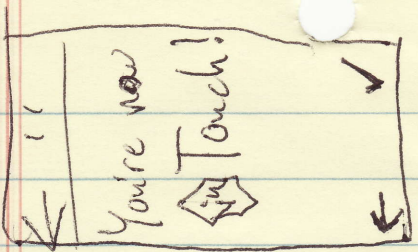 You're now
in Touch!